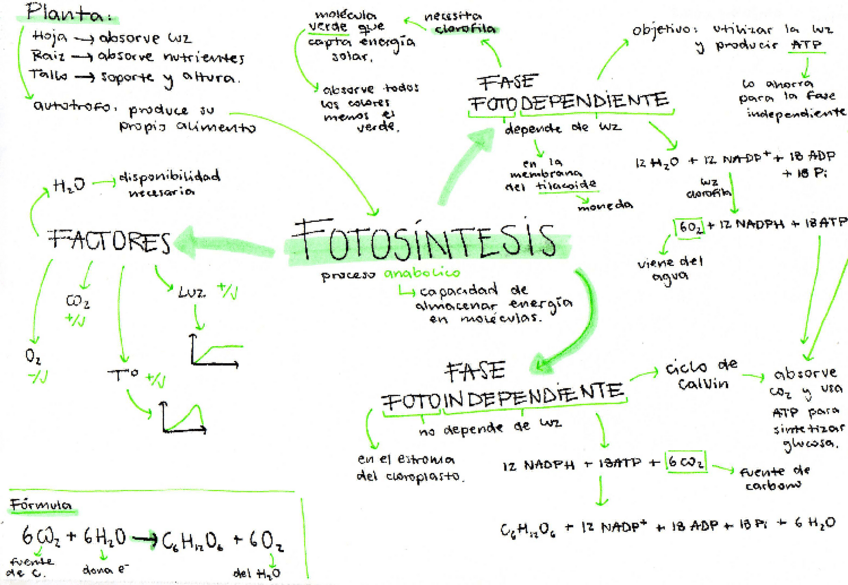 Planta:
Hoja → absorve luz
Raiz → absorve nutrientes
Tallo → soporte y altura.
autótrofo: produce su
propio alimento
molécula
verde que
capta energía
solar.
necesita
clorofila
absorve todos
los colores
menos el
verde.
FASE
FOTODEPENDIENTE
depende de luz
en la
membrana
del tilacoide
moneda
objetivo: utilizar la luz
y producir ATP
lo ahorra
para la fase
independiente
12 H₂O + 12 NADP⁺ + 18 ADP
+ 18 Pi
luz
clorofila
6O₂ + 12 NADPH + 18ATP
viene del
agua
H₂O → disponibilidad
necesaria
FACTORES
CO₂
+/√
Luz +/√
O₂
-/√
T° +/√
FOTOSÍNTESIS
proceso anabolico
capacidad de
almacenar energía
en moléculas.
FASE
FOTOINDEPENDIENTE
no depende de luz
en el estroma
del cloroplasto.
ciclo de
Calvin
absorve
CO₂ y usa
ATP para
sintetizar
glucosa.
12 NADPH + 18ATP + 6 CO₂
fuente de
carbono
C₆H₁₂O₆ + 12 NADP⁺ + 18 ADP + 18 Pi + 6 H₂O
Fórmula
6CO₂ + 6H₂O → C₆H₁₂O₆ + 6O₂
fuente
de C.
dona e⁻
del H₂O